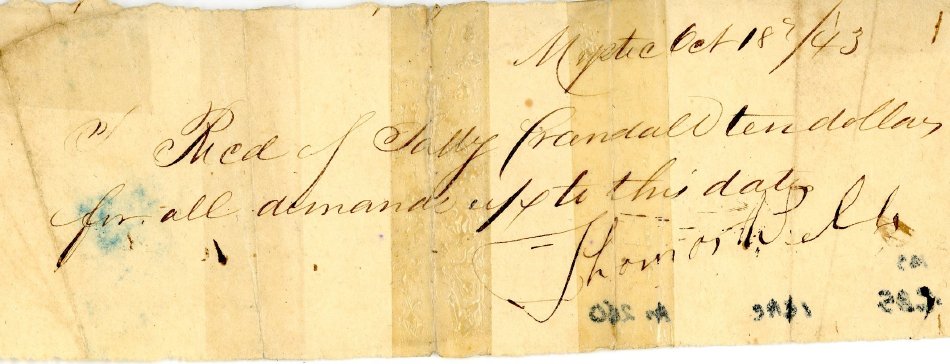 Mystic Oct 18th/43
Recd of Sally Crandall ten dollars
for all demands up to this date
Thomas